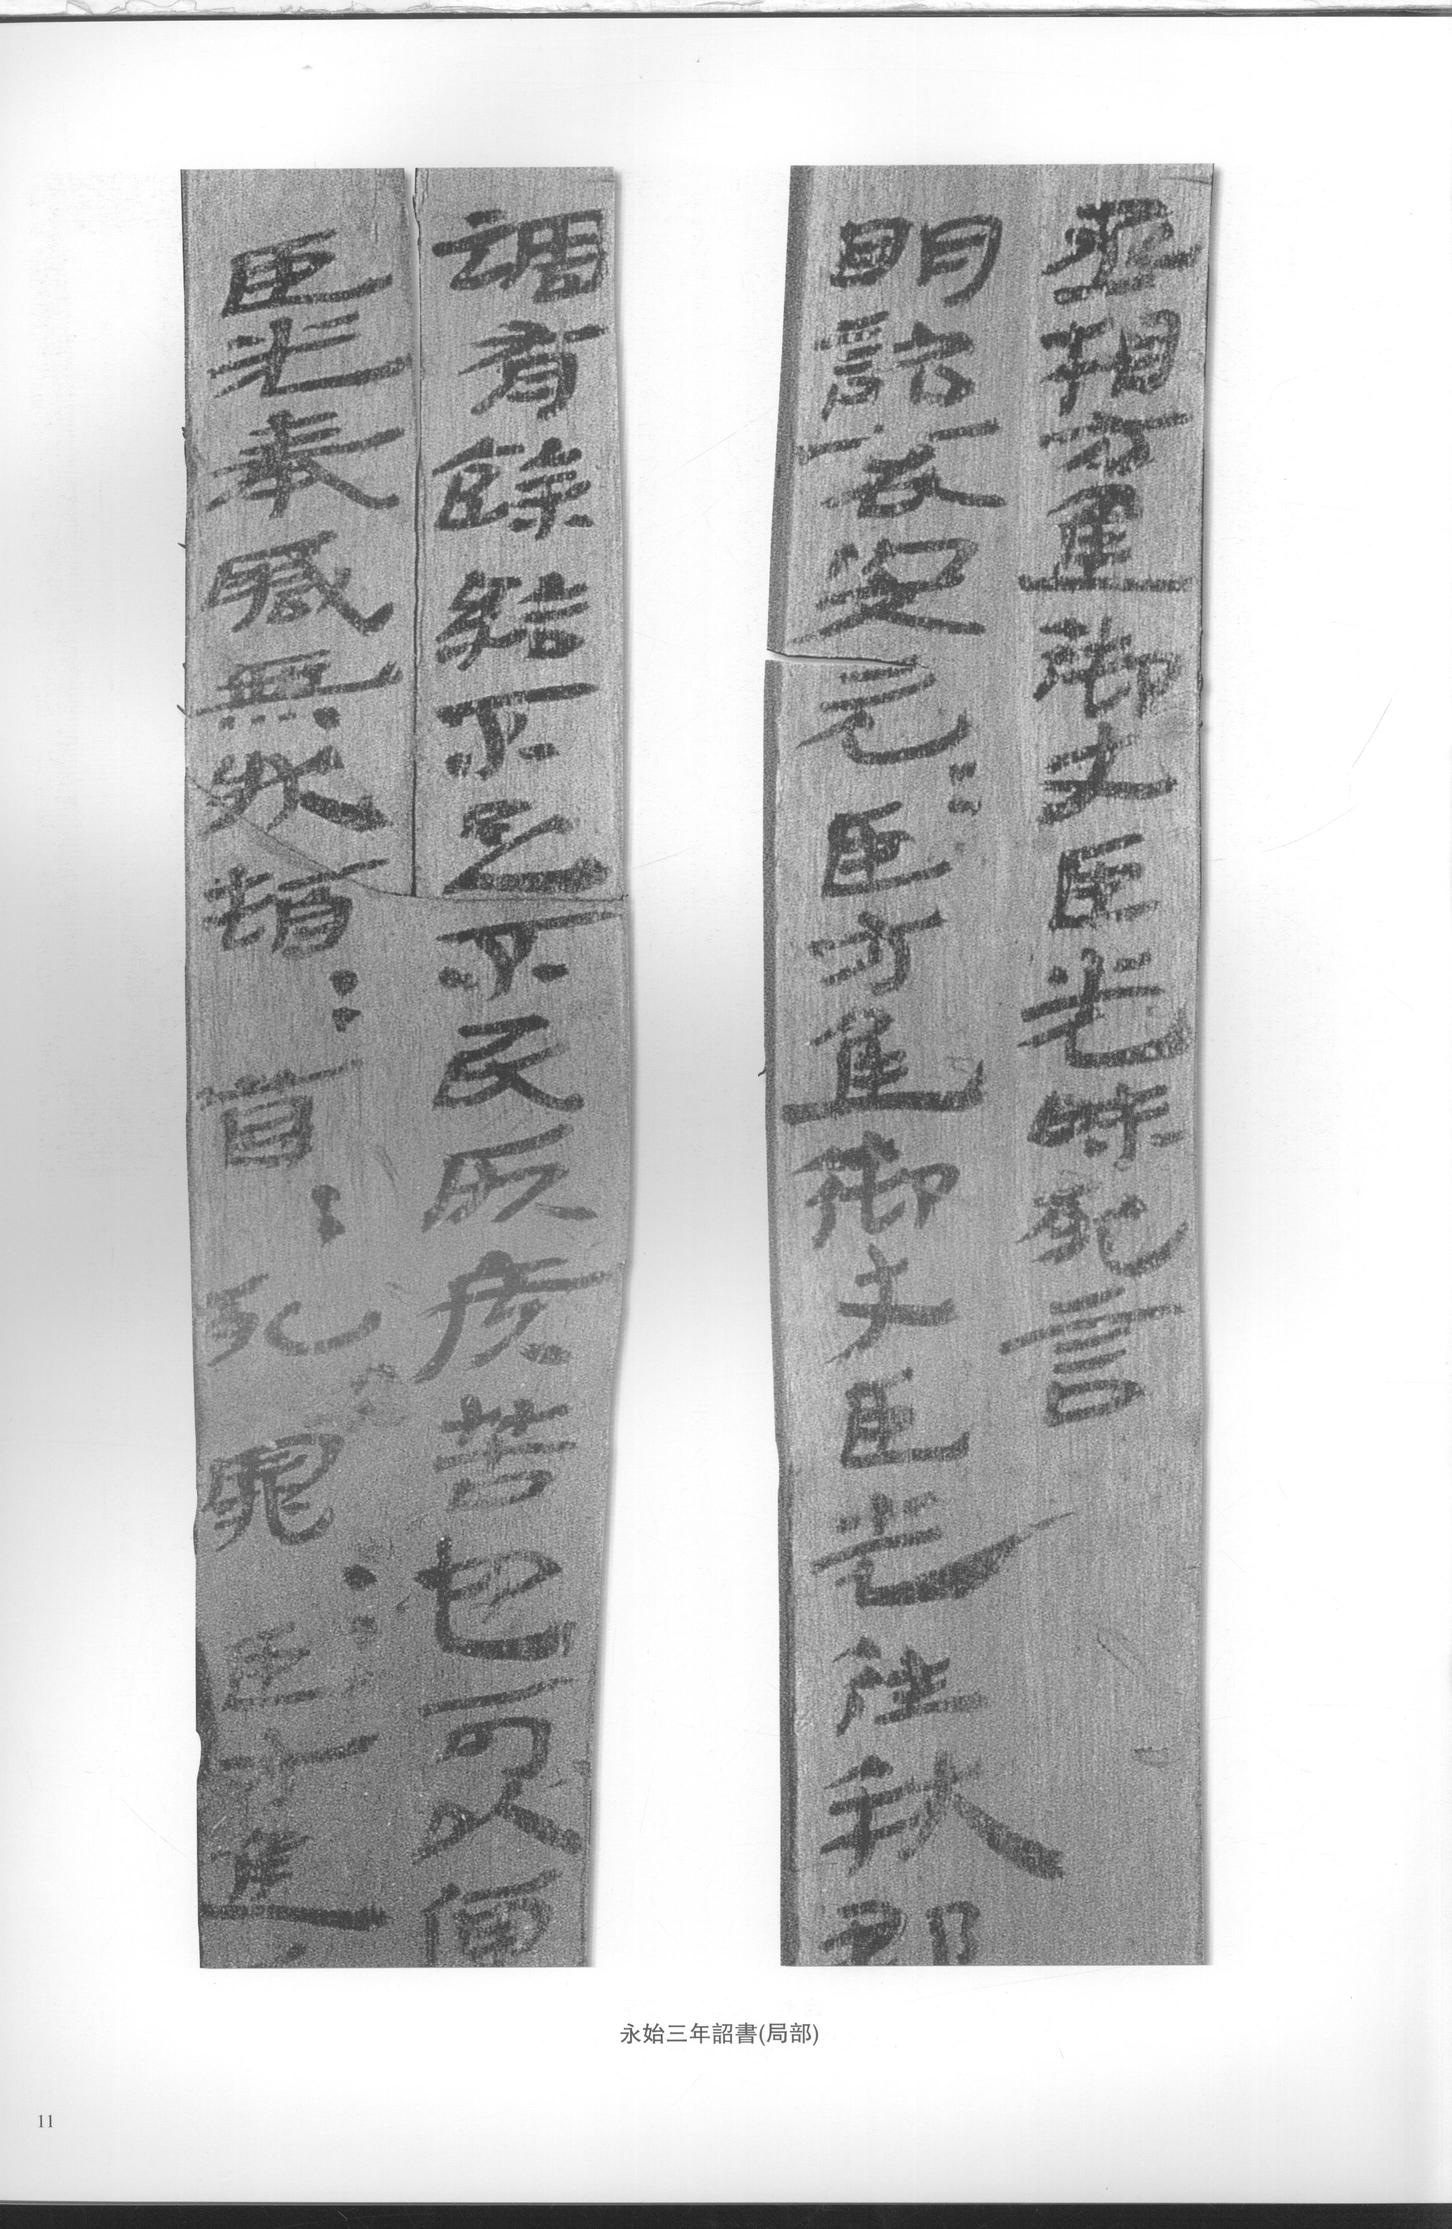 丞相方進御史臣光昧死言
明詔哀安元=臣方進御史臣光往秋郡
調有餘給不足不民所疾苦也可以便
臣光奉職無狀頓=首=死罪=臣方進
永始三年詔書(局部)
11